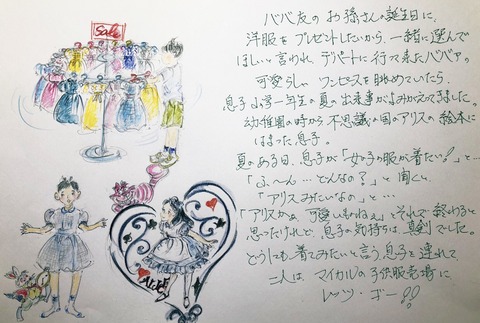 Sale
ババ友のお孫さんの誕生日に、
洋服をプレゼントしたいから、一緒に選んで
ほしいと言われ、デパートに行って来たババァ。
可愛らしいワンピースを眺めていたら、
息子小学一年生の夏の出来事がよみがえてきました。
幼稚園の時から不思議の国のアリスの絵本に
はまった息子。
夏のある日、息子が「女の子の服が着たい!」と…
「ふ〜ん…どんなの?」と聞くと、
「アリスみたいなの」と…
「アリスかぁ、可愛いもねぇ」とそれで終わると
思ったけれど、息子の気持ちは真剣でした。
どうしても着てみたいと言う息子を連れて、
二人は、マイカルの子供服売場に
レッツ・ゴー!!
ALICE